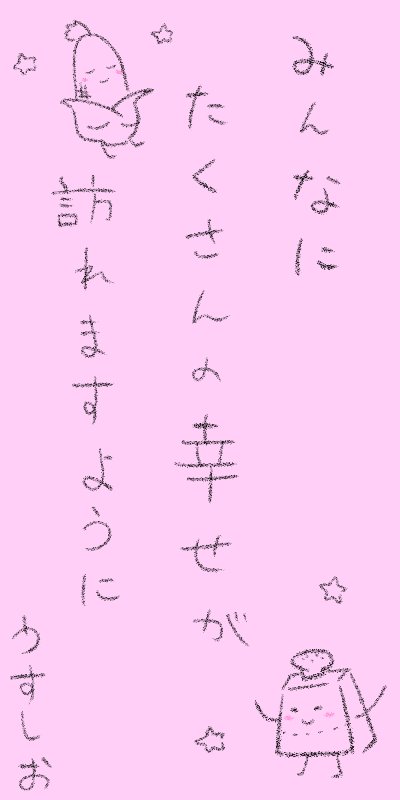 みんなに
たくさんの幸せが
訪れますように
うすしお